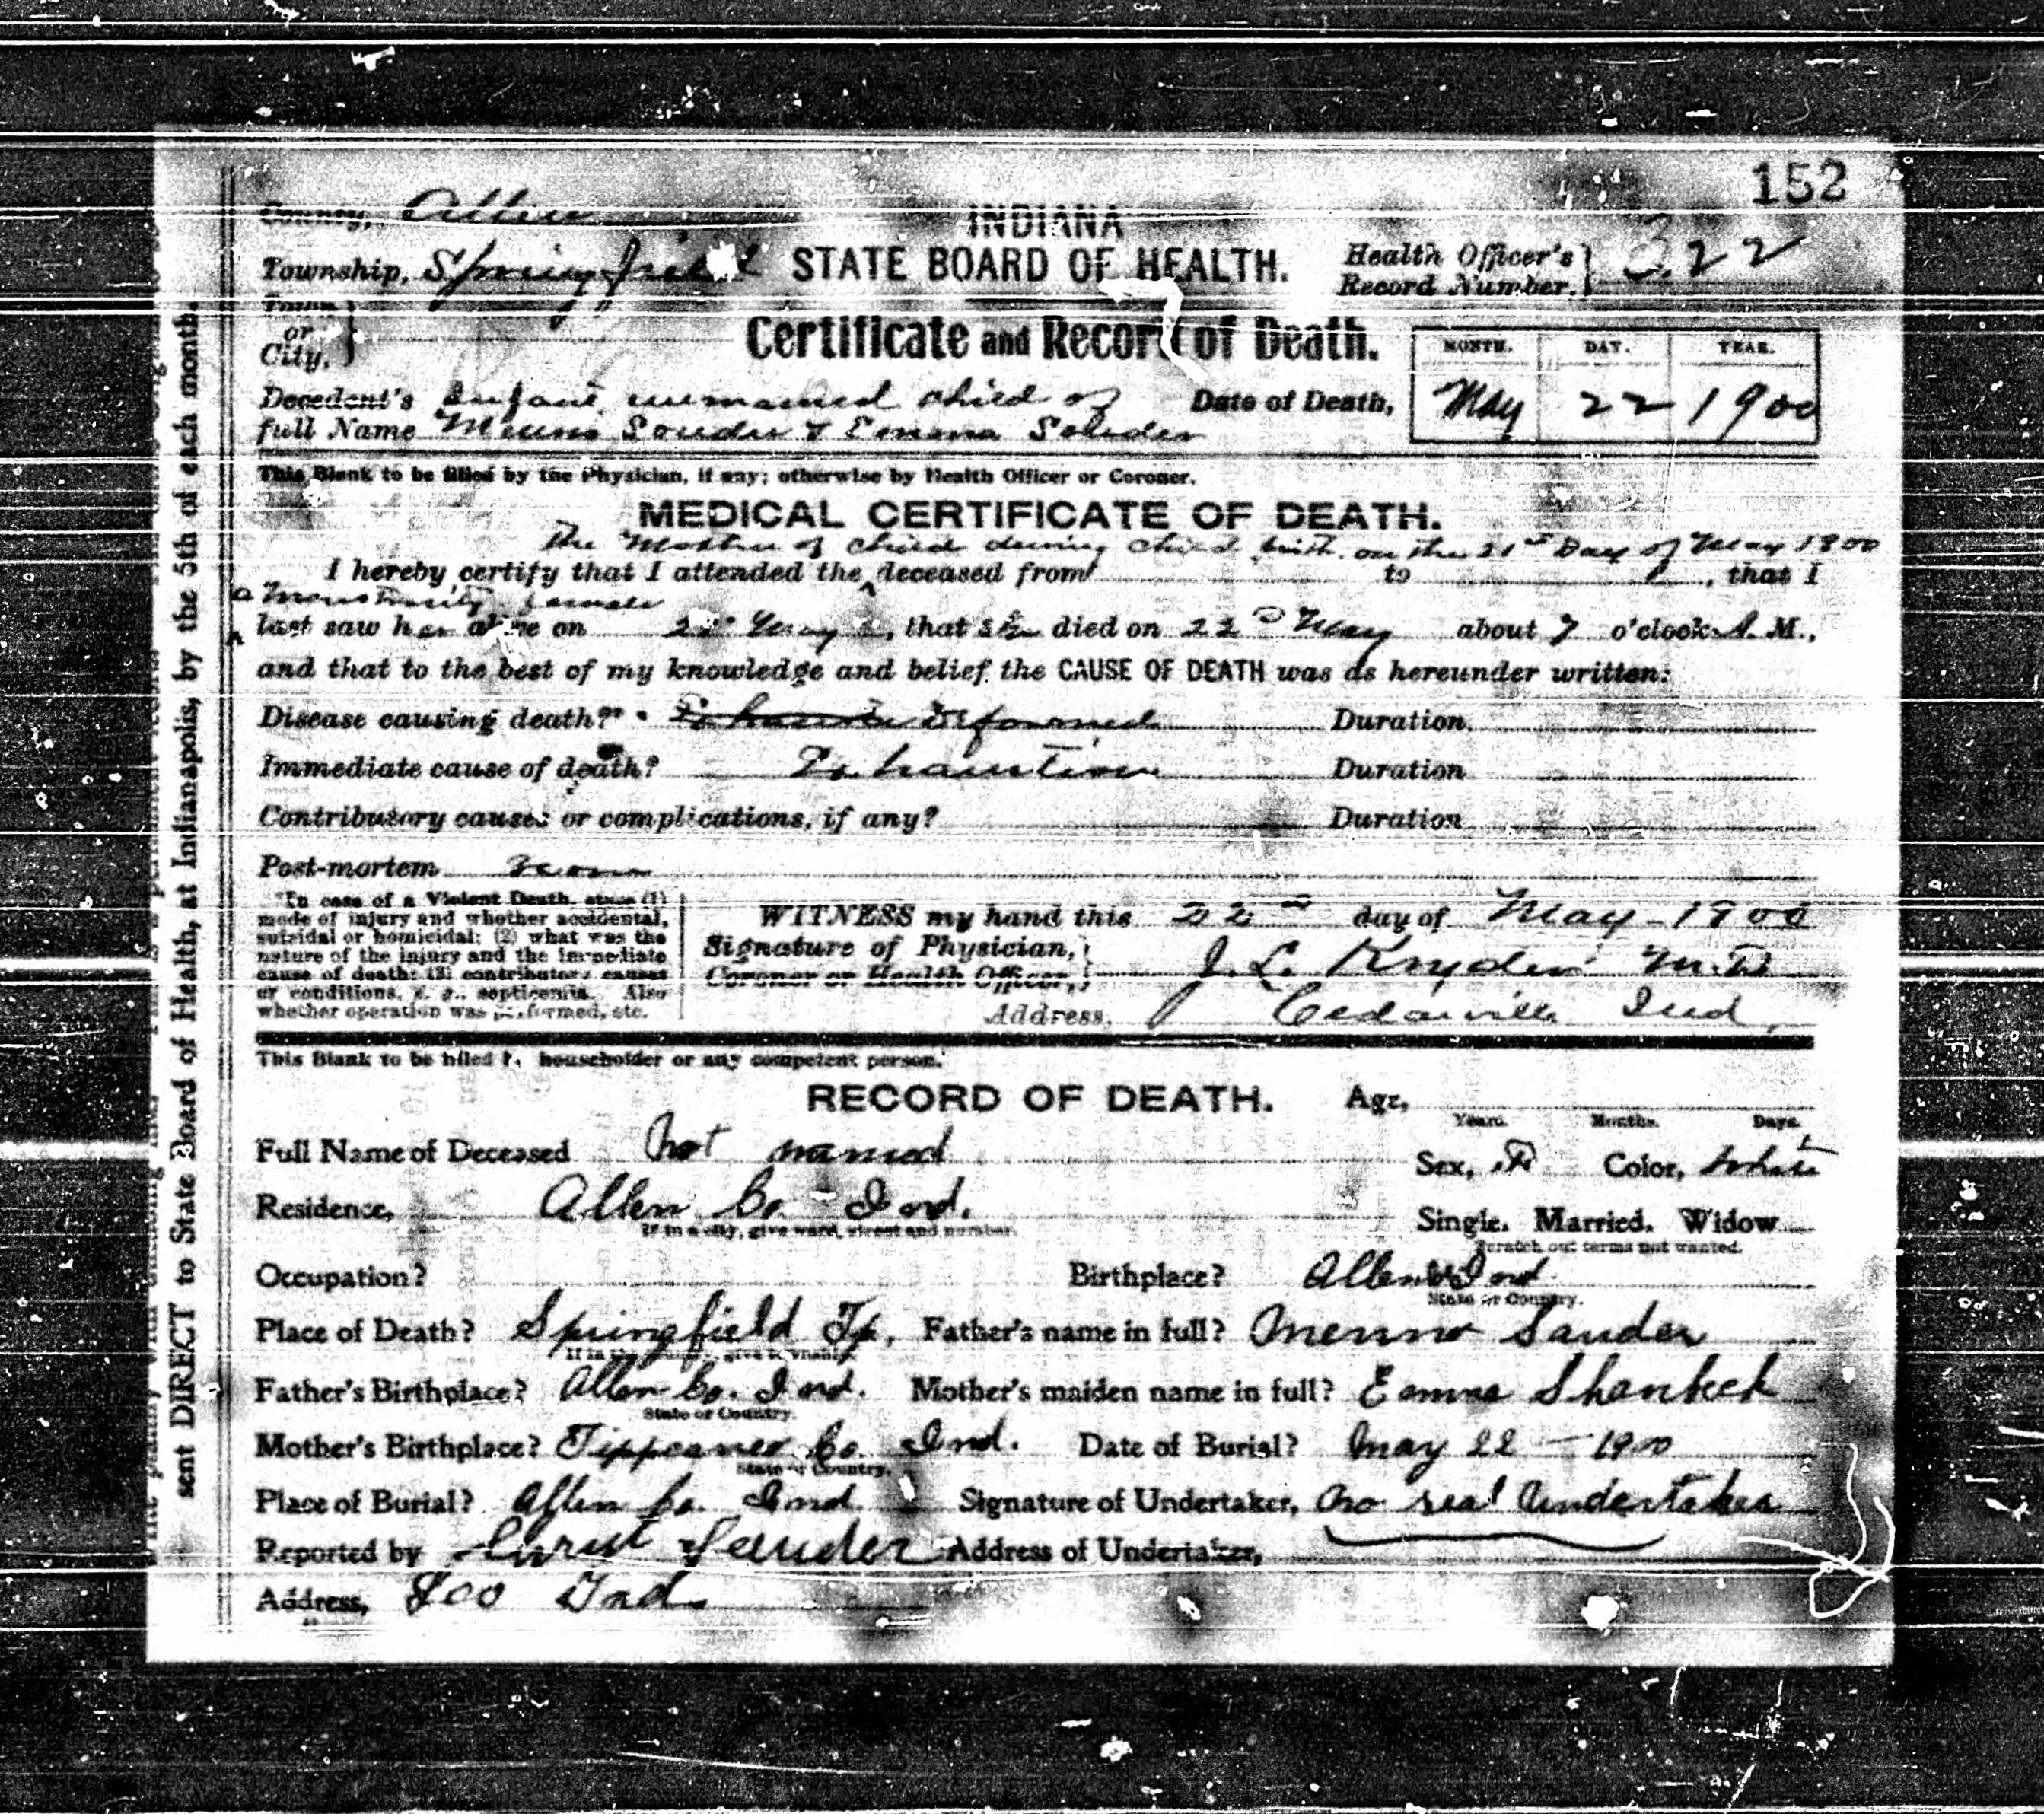 152
County, Allen
INDIANA
Township, Springfield STATE BOARD OF HEALTH. Health Officer's Record Number. 322
Town or City,
Certificate and Record of Death.
MONTH. DAY. YEAR.
Decedent's full Name Infant unnamed child of
Menno Souder & Emma Souder
Date of Death, May 22 1900
This Blank to be filled by the Physician, if any; otherwise by Health Officer or Coroner.
MEDICAL CERTIFICATE OF DEATH.
The Mother of child during child birth on the 21st Day of May 1900
I hereby certify that I attended the deceased from to , that I
a Monstrosity female
last saw her alive on May , that she died on 22nd May about 7 o'clock A. M.,
and that to the best of my knowledge and belief the CAUSE OF DEATH was as hereunder written:
Disease causing death?* Deformed Duration
Immediate cause of death? Exhaustion Duration
Contributory causes or complications, if any? Duration
Post-mortem
*In case of a Violent Death, state (1)
mode of injury and whether accidental,
suicidal or homicidal; (2) what was the
nature of the injury and the immediate
cause of death; (3) contributory causes
or conditions, e. g., septicemia. Also
whether operation was performed, etc.
WITNESS my hand this 22nd day of May - 1900
Signature of Physician, Coroner or Health Officer, J. L. Kryder M.D.
Address, Cedarville Ind.
This Blank to be filled by householder or any competent person.
RECORD OF DEATH. Age,
Years. Months. Days.
Full Name of Deceased Not named Sex, F Color, White
Residence, Allen Co. Ind. Single. Married. Widow
If in a city, give ward, street and number. Scratch out terms not wanted.
Occupation? Birthplace? Allen Co Ind
State or Country.
Place of Death? Springfield Tp. Father's name in full? Menno Sauder
If in the country, give township.
Father's Birthplace? Allen Co. Ind. Mother's maiden name in full? Emma Shanbeck
State or Country.
Mother's Birthplace? Tippcanoe Co. Ind. Date of Burial? May 22 - 1900
State or Country.
Place of Burial? Allen Co. Ind. Signature of Undertaker, No real Undertaker
Reported by Christ Sauder Address of Undertaker,
Address, Leo Ind.
sent DIRECT to State Board of Health, at Indianapolis, by the 5th of each month.